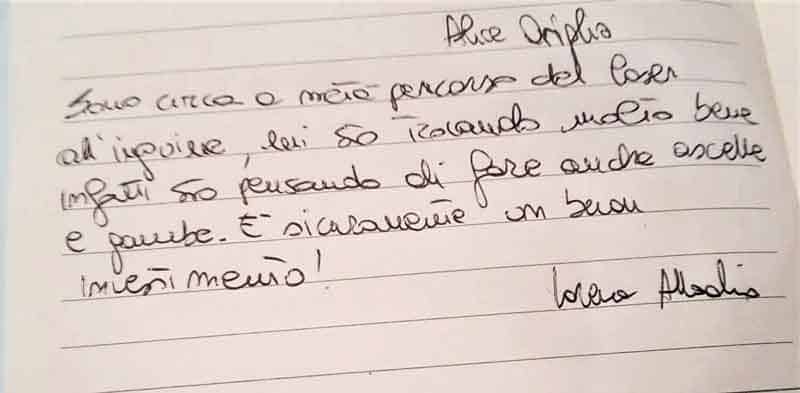 Alice
Sono circa a metà percorso del laser
all'inguine, mi sto trovando molto bene
infatti sto pensando di fare anche ascelle
e gambe. È sicuramente un buon
investimento!